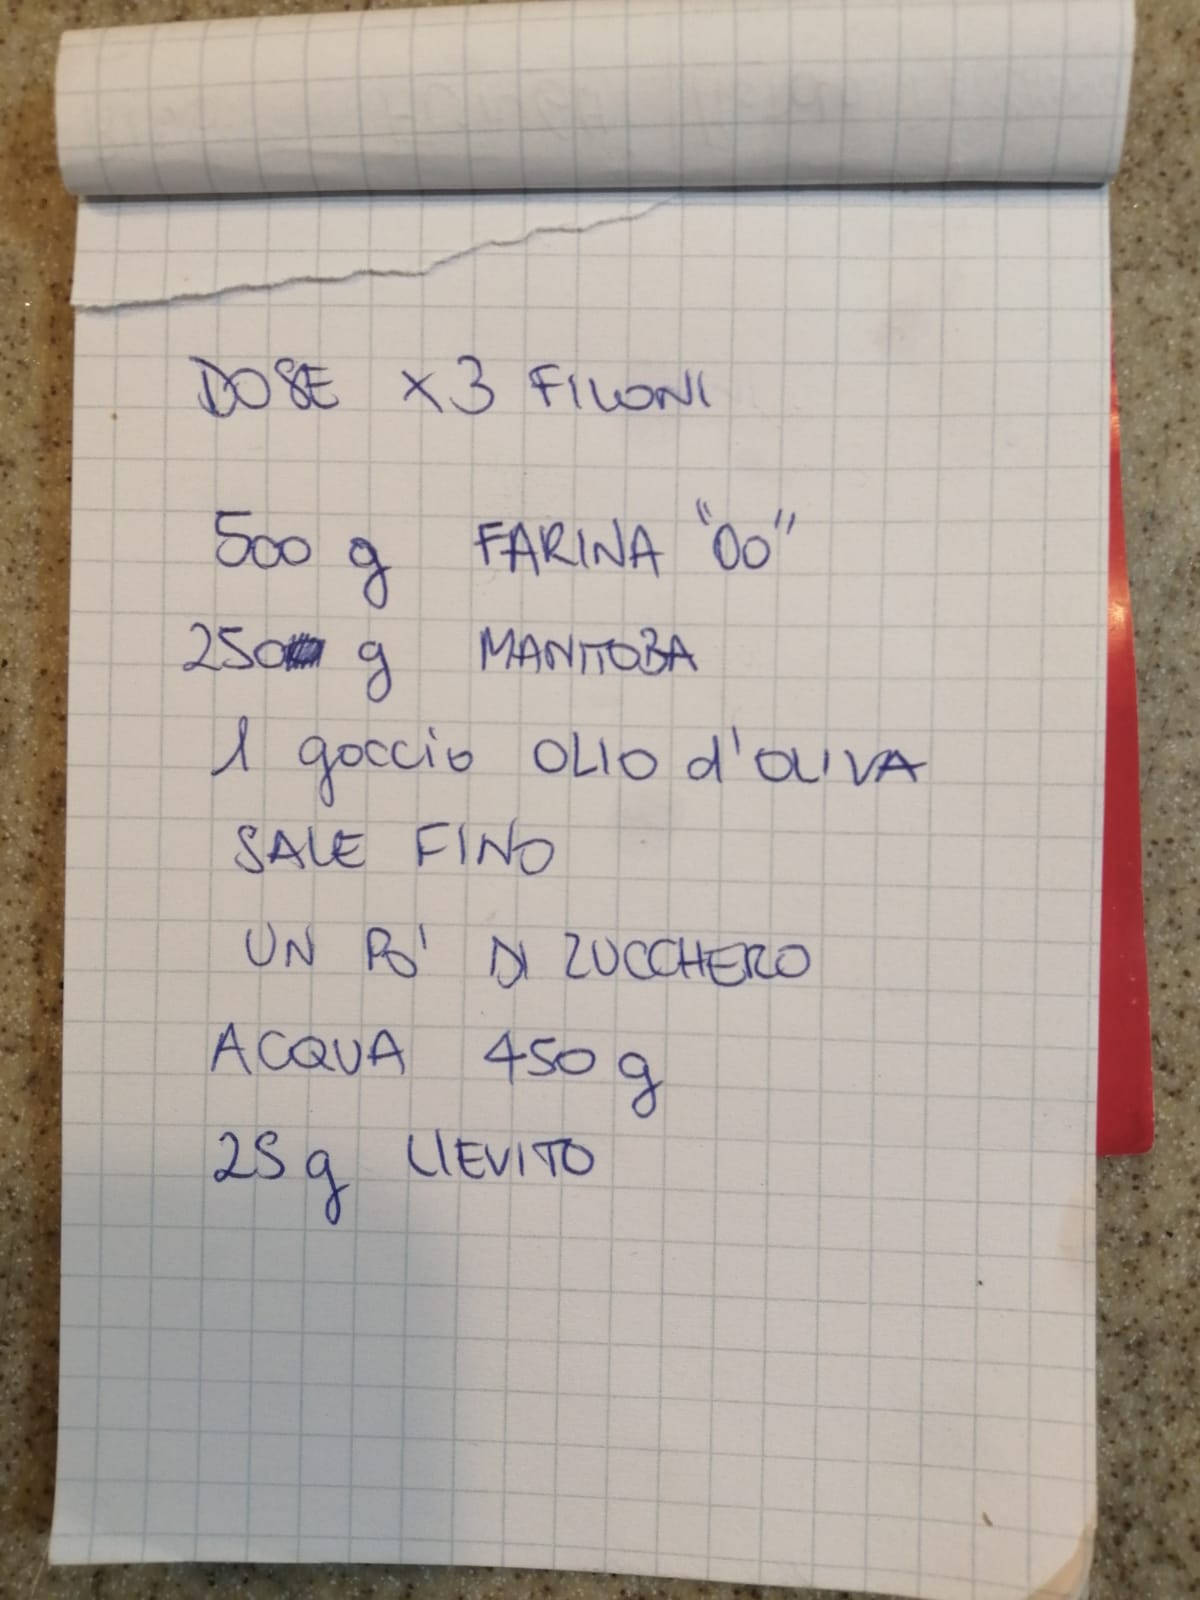 DOSE x3 FILONI
500 g FARINA "00"
250 g MANITOBA
1 goccio OLIO d'OLIVA
SALE FINO
UN PO' DI ZUCCHERO
ACQUA 450 g
25 g LIEVITO